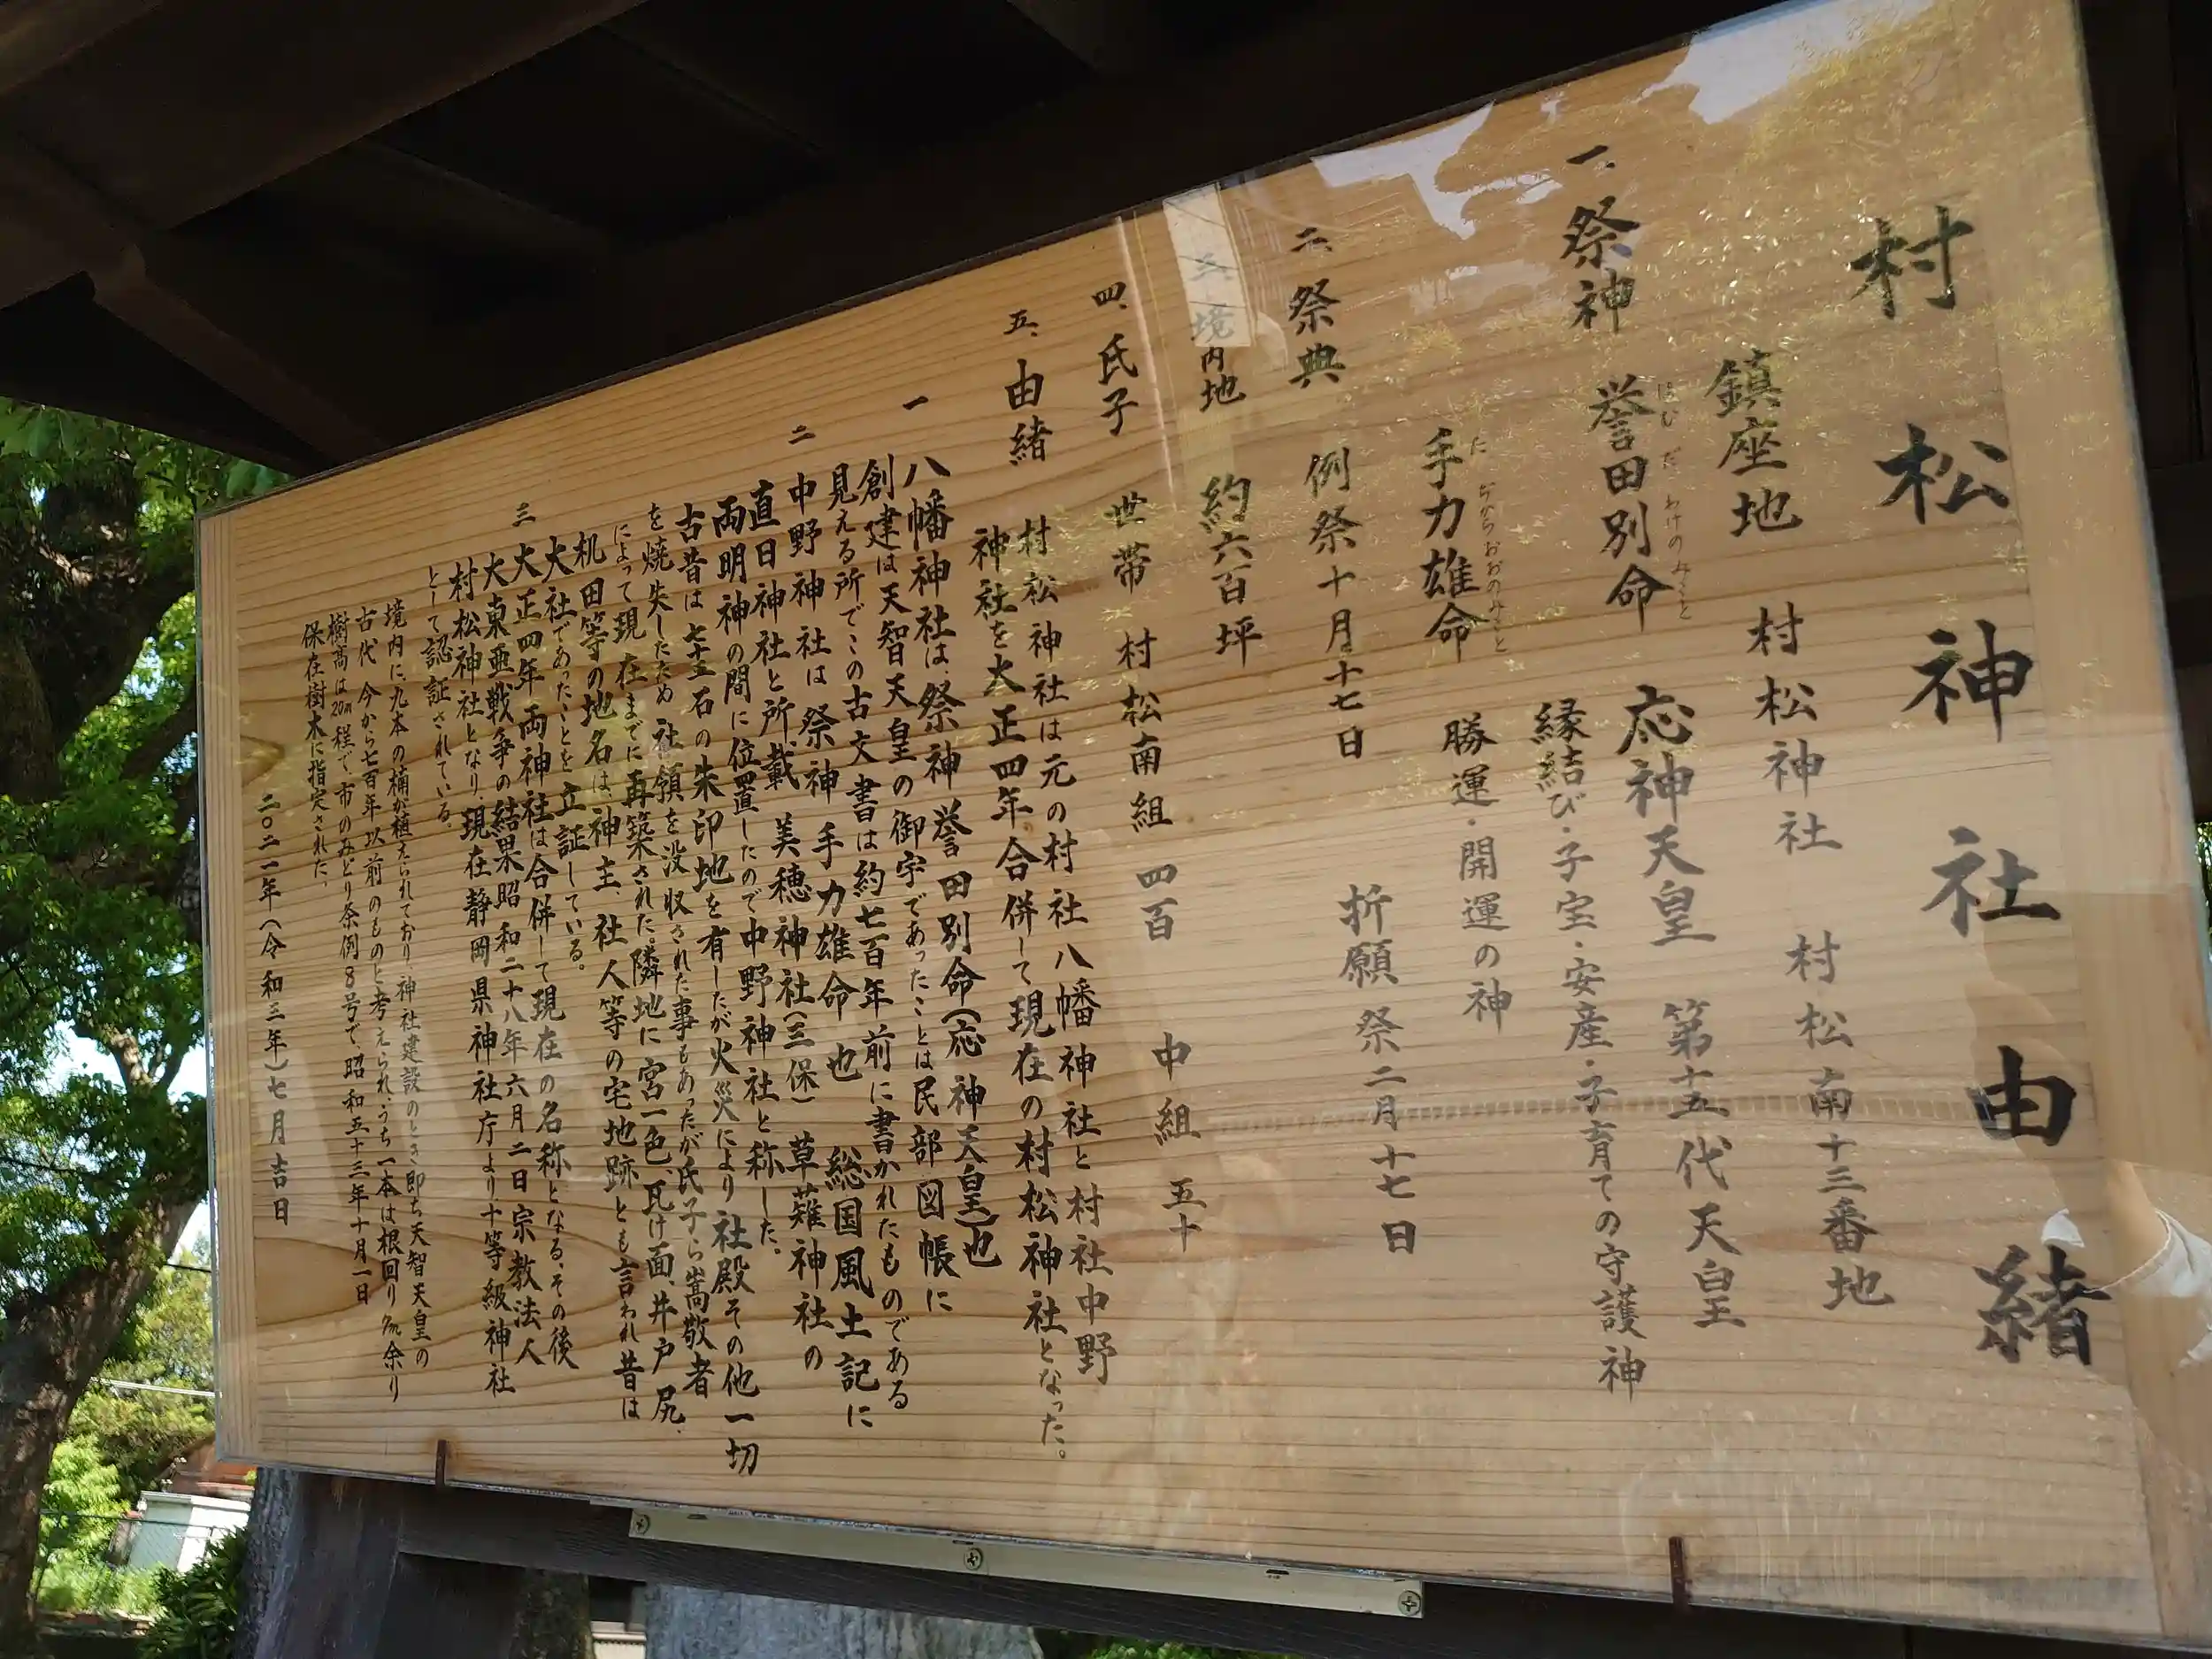 村松神社由緒
鎮座地 村松神社 村松南十三番地
一、祭神 誉田別命 応神天皇 第十五代天皇
ほむだわけのみこと
縁結び・子宝・安産・子育ての守護神
手力雄命 勝運・開運の神
たぢからおおのみこと
二、祭典 例祭十月十七日 折願祭二月十七日
三、境内地 約六百坪
四、氏子 世帯 村松南組 四百 中組 五十
五、由緒 村松神社は元の村社八幡神社と村社中野
神社を大正四年合併して現在の村松神社となった。
一 八幡神社は、祭神 誉田別命(応神天皇)也
創建は天智天皇の御宇であったことは民部図帳に
見える所でこの古文書は約七百年前に書かれたものである
二 中野神社は祭神 手力雄命也 総国風土記に
直日神社と所載 美穂神社(三保) 草薙神社の
両明神の間に位置したので中野神社と称した。
古昔は七十五石の朱印地を有したが火災により社殿その他一切
を焼失したため 社領を没収された事もあったが氏子ら崇敬者
によって現在までに再築された。隣地に宮一色、瓦け面、井戸尻、
机田等の地名は、神主、社人等の宅地跡とも言われ昔は
大社であったことを立証している。
三 大正四年両神社は合併して現在の名称となる、その後
大東亜戦争の結果昭和二十八年六月二日宗教法人
村松神社となり、現在静岡県神社庁より十等級神社
として認証されている。
境内に九本の楠が植えられており、神社建設のとき即ち天智天皇の
古代 今から七百年以前のものと考えられ、うち一本は根回り7m余り
樹高は20m程で、市のみどり条例8号で、昭和五十三年十月一日
保在樹木に指定された、
二〇二一年(令和三年)七月吉日